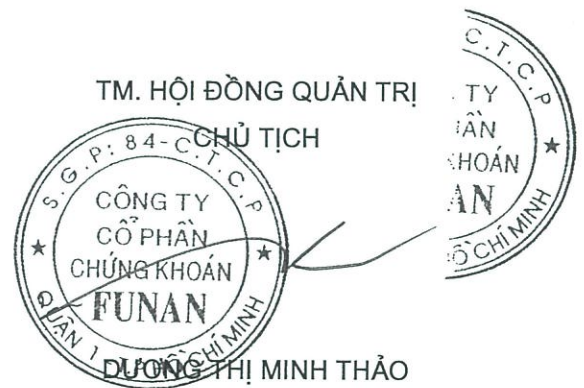 TM. HỘI ĐỒNG QUẢN TRỊ
CHỦ TỊCH
S.G.P: 84-C.T.C.P
CÔNG TY
CỔ PHẦN
CHỨNG KHOÁN
FUNAN
QUẬN 1 HỒ CHÍ MINH
DƯƠNG THỊ MINH THẢO
C.T.C.P
TY
HOÁN
AN
HỒ CHÍ MINH